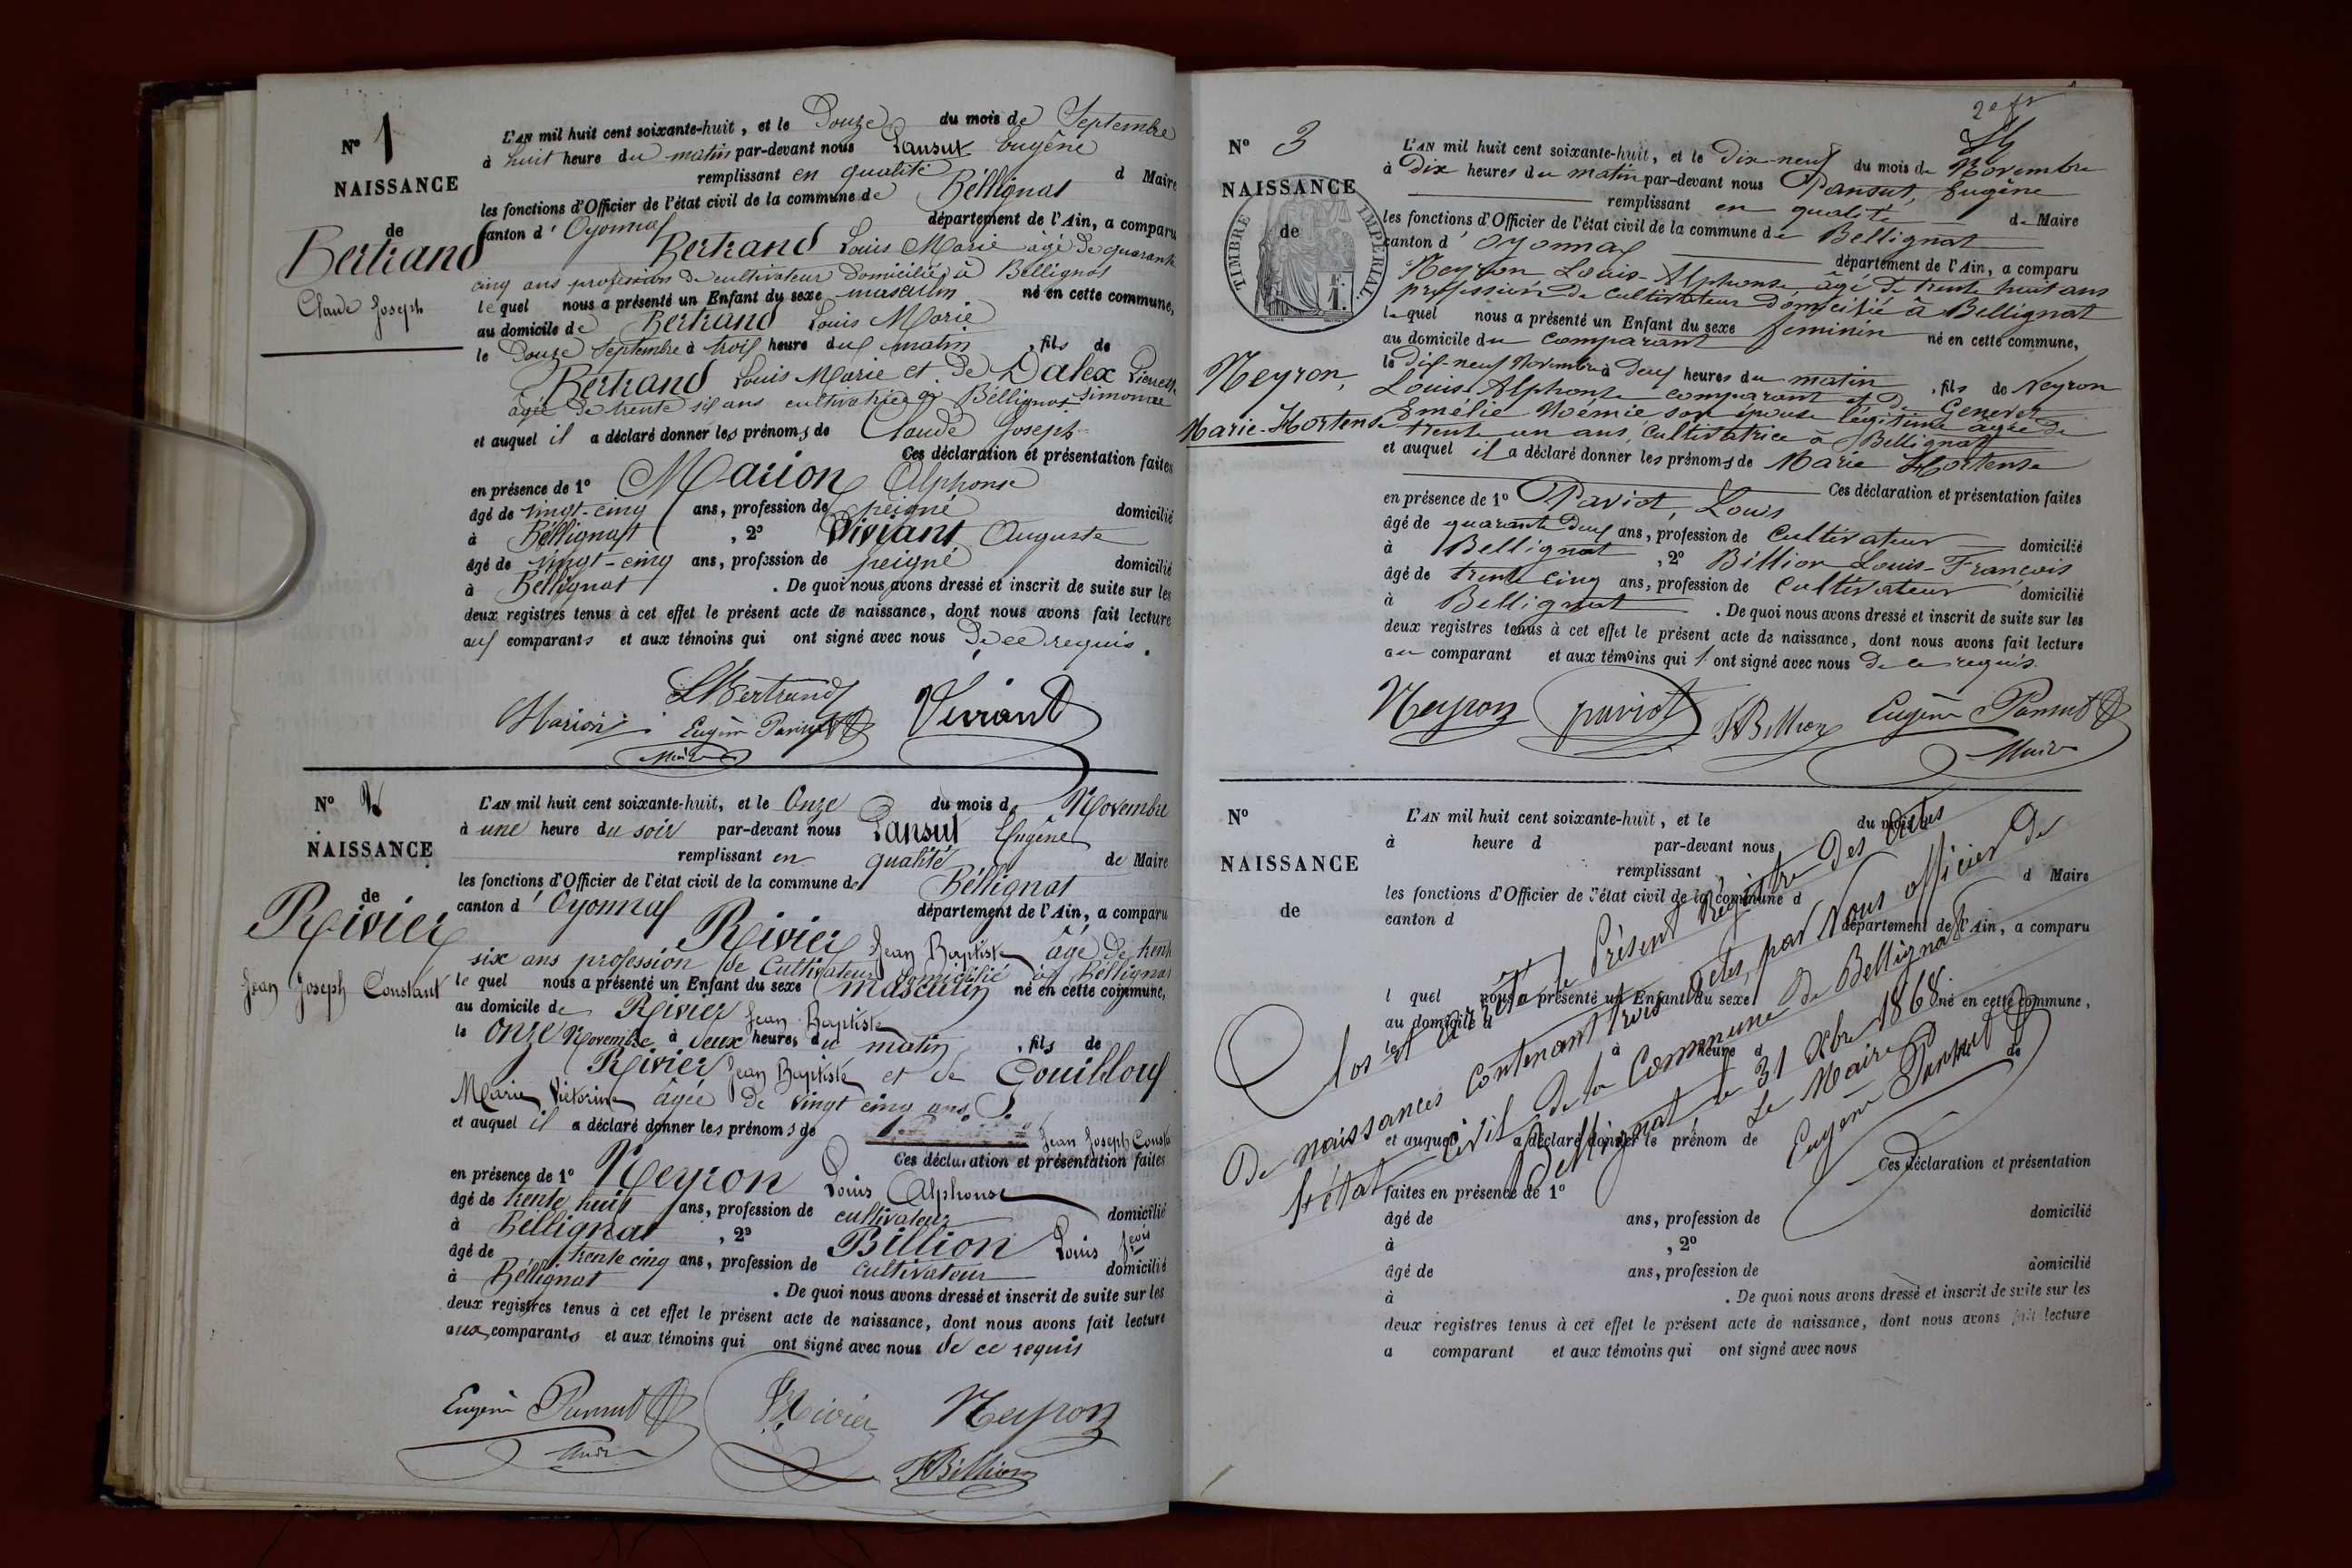 N° 1
NAISSANCE
de
Bertrand
Claude Joseph
L'AN mil huit cent soixante-huit, et le Douze du mois de Septembre
à huit heure du matin par-devant nous Pansut Eugène
remplissant en qualité d Maire
les fonctions d'Officier de l'état civil de la commune de Béllignat
canton d'Oyonnax département de l'Ain, a comparu
Bertrand Louis Marie âgé de quarante
cinq ans profession de cultivateur domicilié à Bellignat
le quel nous a présenté un Enfant du sexe masculin né en cette commune,
au domicile de Bertrand Louis Marie
le Douze Septembre à trois heure du matin, fils de
Bertrand Louis Marie et de Dalex
âgée de trente six ans cultivatrice à Béllignat Simonne
et auquel il a déclaré donner les prénoms de Claude Joseph
Ces déclaration et présentation faites
en présence de 1° Marion Alphonse
âgé de vingt-cinq ans, profession de peigné domicilié
à Béllignat, 2° Viviant Auguste
âgé de vingt-cinq ans, profession de peigné domicilié
à Bellignat. De quoi nous avons dressé et inscrit de suite sur les
deux registres tenus à cet effet le présent acte de naissance, dont nous avons fait lecture
aux comparants et aux témoins qui ont signé avec nous De ce requis.
LBertrand
Marion Eugène Pansut Viviant
Maire
N° 2
NAISSANCE
de
Rivier
Jean Joseph Constant
L'AN mil huit cent soixante-huit, et le Onze du mois de Novembre
à une heure du soir par-devant nous Pansut Eugène
remplissant en qualité de Maire
les fonctions d'Officier de l'état civil de la commune de Béllignat
canton d'Oyonnax département de l'Ain, a comparu
Rivier Jean Baptiste âgé de trente
six ans profession de Cultivateur domicilié à Béllignat
le quel nous a présenté un Enfant du sexe masculin né en cette commune,
au domicile de Rivier Jean Baptiste
le onze Novembre à deux heures du matin, fils de
Rivier Jean Baptiste et de Gouilloux
Marie Victorine âgée de vingt cinq ans
et auquel il a déclaré donner les prénoms de Jean Joseph Consta
Ces déclaration et présentation faites
en présence de 1° Neyron Louis Alphonse
âgé de trente huit ans, profession de cultivateur domicilié
à Béllignat, 2° Billion Louis fçois
âgé de trente cinq ans, profession de cultivateur domicilié
à Béllignat. De quoi nous avons dressé et inscrit de suite sur les
deux registres tenus à cet effet le présent acte de naissance, dont nous avons fait lecture
aux comparants et aux témoins qui ont signé avec nous de ce requis
Eugène Pansut Rivier Neyron
Maire FBillion
2e fr
N° 3
NAISSANCE
de
TIMBRE IMPÉRIAL
Neyron,
Marie-Hortense
L'AN mil huit cent soixante-huit, et le Dix-neuf du mois de Novembre
à Dix heures du matin par-devant nous Pansut, Eugène
remplissant en qualité de Maire
les fonctions d'Officier de l'état civil de la commune de Bellignat
canton d'Oyonnax département de l'Ain, a comparu
Neyron Louis-Alphonse, âgé de trente huit ans
profession de cultivateur domicilié à Bellignat
le quel nous a présenté un Enfant du sexe feminin né en cette commune,
au domicile du comparant
le dix-neuf Novembre à Deux heures du matin, fils de Neyron
Louis-Alphonse comparant et de Genevet
Emélie Noémie son épouse légitime agée de
trente un ans, cultivatrice à Bellignat
et auquel il a déclaré donner les prénoms de Marie Hortense
Ces déclaration et présentation faites
en présence de 1° Paviot, Louis
âgé de quarante deux ans, profession de Cultivateur domicilié
à Bellignat, 2° Billion Louis-François
âgé de trente cinq ans, profession de Cultivateur domicilié
à Bellignat. De quoi nous avons dressé et inscrit de suite sur les
deux registres tenus à cet effet le présent acte de naissance, dont nous avons fait lecture
au comparant et aux témoins qui ont signé avec nous De ce requis.
Neyron paviot FBillion Eugène Pansut
Maire
N°
NAISSANCE
de
L'AN mil huit cent soixante-huit, et le du mois de
à heure d par-devant nous
remplissant d Maire
les fonctions d'Officier de l'état civil de la commune d
canton d département de l'Ain, a comparu
l quel nous a présenté un Enfant du sexe né en cette commune,
au domicile d
le à heure d de
et auquel a déclaré donner le prénom de
Ces déclaration et présentation
faites en présence de 1°
âgé de ans, profession de domicilié
à , 2°
âgé de ans, profession de domicilié
à . De quoi nous avons dressé et inscrit de suite sur les
deux registres tenus à cet effet le présent acte de naissance, dont nous avons fait lecture
a comparant et aux témoins qui ont signé avec nous
Clos et arrêté le Présent Registre des actes
De naissances contenant trois actes, par Nous officier de
l'état civil de la Commune de Bellignat
Bellignat le 31 Xbre 1868.
Le Maire
Eugène Pansut